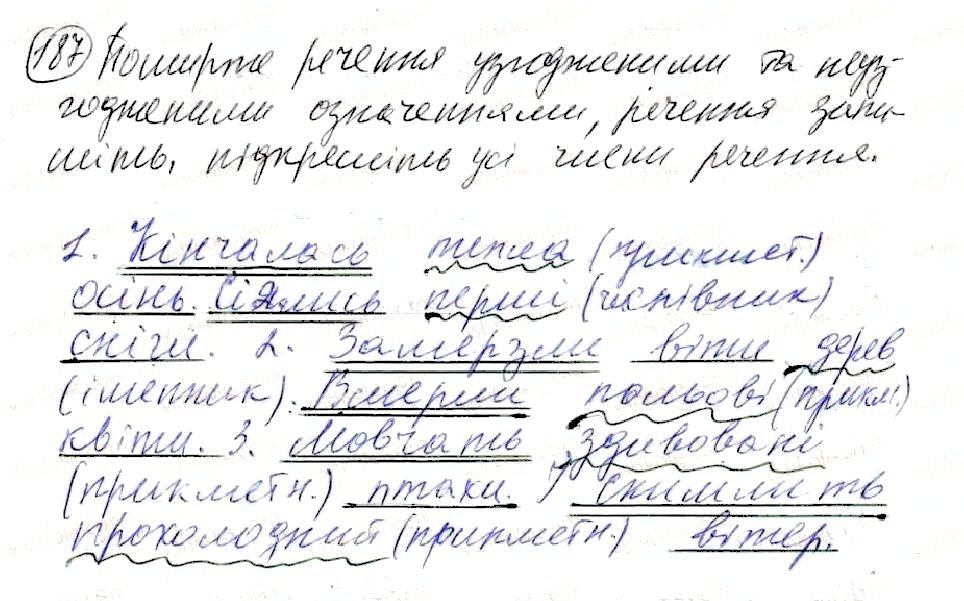 187 Поширте речення узгодженими та неуз-
годженими означеннями, речення запи-
шіть, підкресліть усі члени речення.
1. Кінчалась тепла (прикмет.)
осінь. Сіялись перші (числівник)
сніги. 2. Замерзли віти дерев
(іменник). Вмерли польові (прикм.)
квіти. 3. Мовчать здивовані
(прикметн.) птахи. скимлить
прохолодний (прикметн.) вітер.